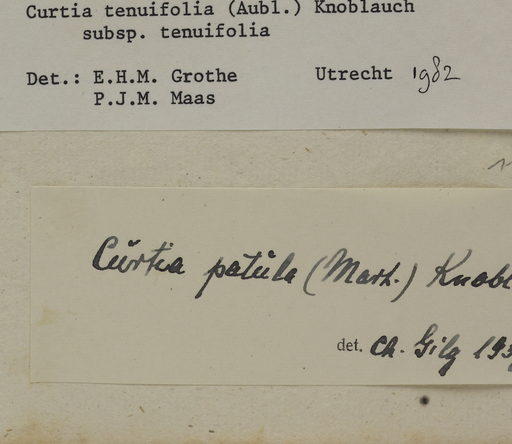 Curtia tenuifolia (Aubl.) Knoblauch
subsp. tenuifolia
Det.: E.H.M. Grothe Utrecht 1982
P.J.M. Maas
Cŭrtia patŭla (Mart.) Knobl
det. Ch. Gilg 193